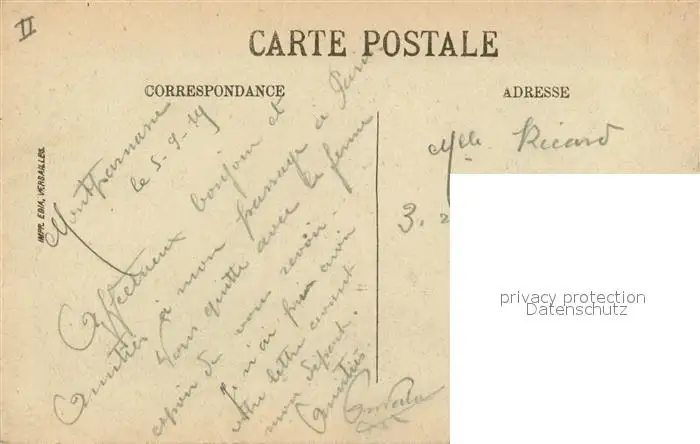 II
CARTE POSTALE
CORRESPONDANCE
ADRESSE
IMPR. EDIA, VERSAILLES.
Montparnasse
le 5-9-19
Affectueux bonjour et
Amitiés à mon passage à Paris
Vous quitte avec la ferme
espoir de vous revoir.
Je n'ai pu avoir
votre lettre avant
mon départ.
Amitiés.
Mlle Ricard
3.
privacy protection
Datenschutz